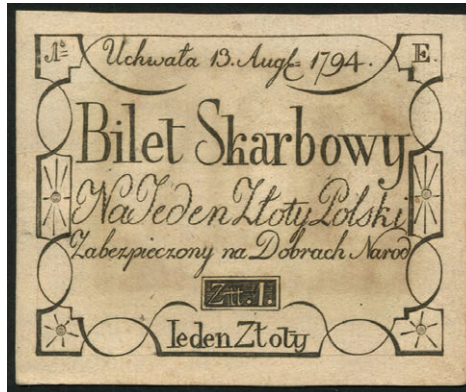 Nº E.
Uchwała 13. Augt. 1794.
Bilet Skarbowy
Na Jeden Złoty Polski
Zabezpieczony na Dobrach Narod
Złł. 1.
Ieden Złoty